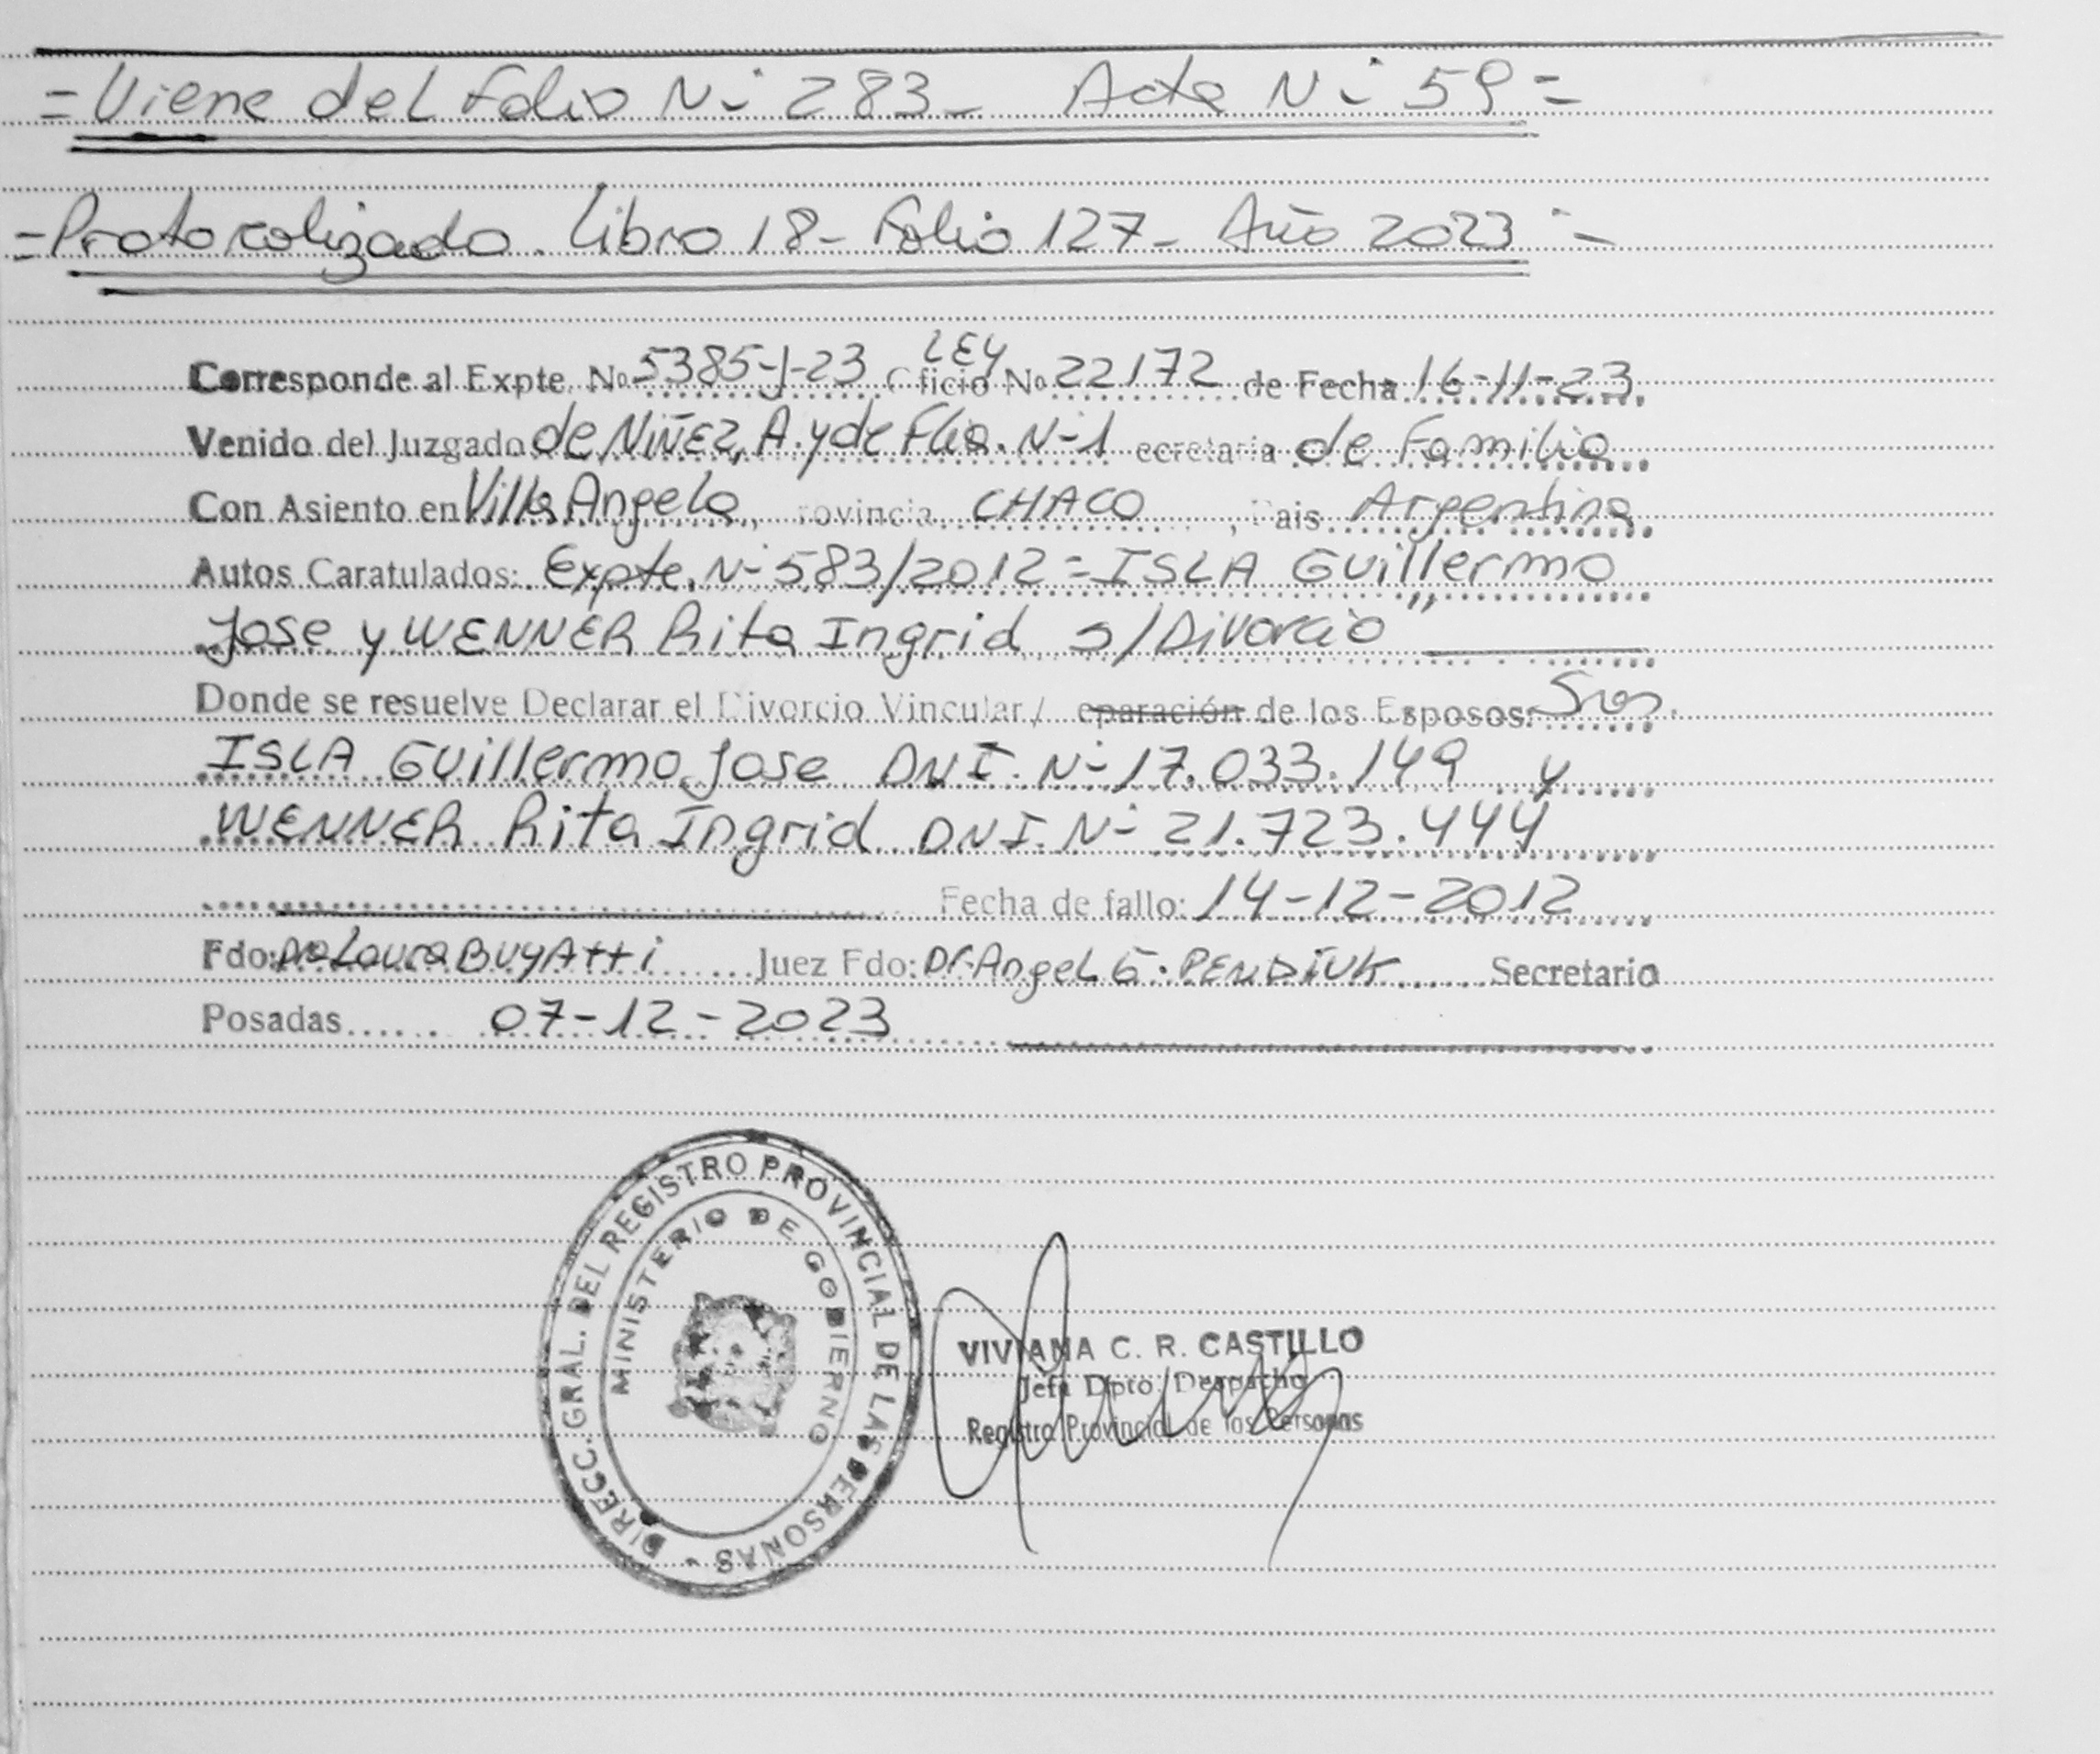 = Viene del Folio Nº 283 - Acta Nº 59 =
= Protocolizado. Libro 18 - Folio 127 - Año 2023 =
Corresponde al Expte. Nº 5385-J-23 Oficio LEY Nº 22172 de Fecha 16-11-23
Venido del Juzgado de NIÑEZ, A. y de Flia. Nº 1 ecretaria de Familia
Con Asiento en Villa Angela, rovincia CHACO, Pais Argentina
Autos Caratulados: Expte. Nº 583/2012 = ISLA Guillermo
Jose y WENNER Rita Ingrid s/Divorcio"
Donde se resuelve Declarar el Divorcio Vincular / eparación de los Esposos: Sres.
ISLA Guillermo Jose DNI. Nº 17.033.149 y
WENNER Rita Ingrid DNI. Nº 21.723.444
Fecha de fallo: 14-12-2012
Fdo: Dra Laura BUYAtti Juez Fdo: Dr. Angel E. PENDIUK Secretario
Posadas 07-12-2023
DIRECC. GRAL. DEL REGISTRO PROVINCIAL DE LAS PERSONAS -
MINISTERIO DE GOBIERNO
VIVIANA C. R. CASTILLO
Jefa Dpto. Despacho
Registro Provincial de las Personas